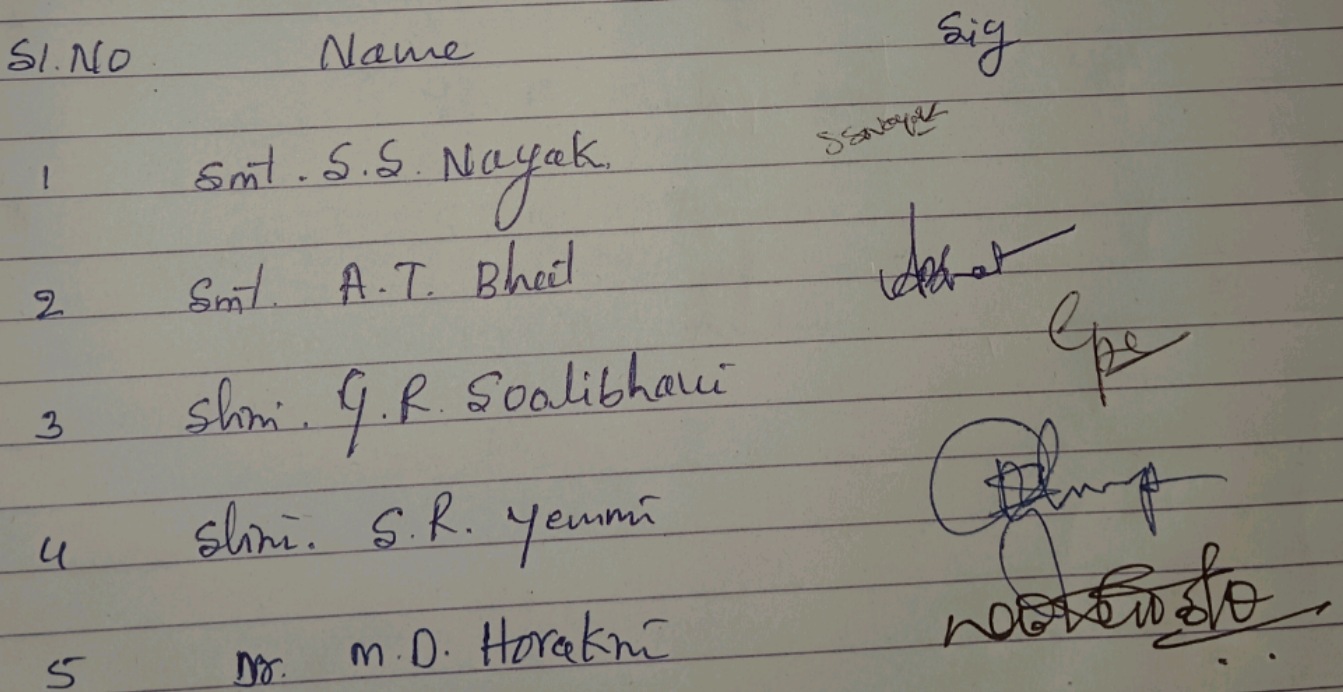 Sl.No Name Sig
1 Smt. S.S. Nayak. SSNayak
2 Smt. A.T. Bheel
3 Shri. G.R. Soolibhavi
4 Shri. S.R. Yemmi
5 Dr. M.D. Horakni